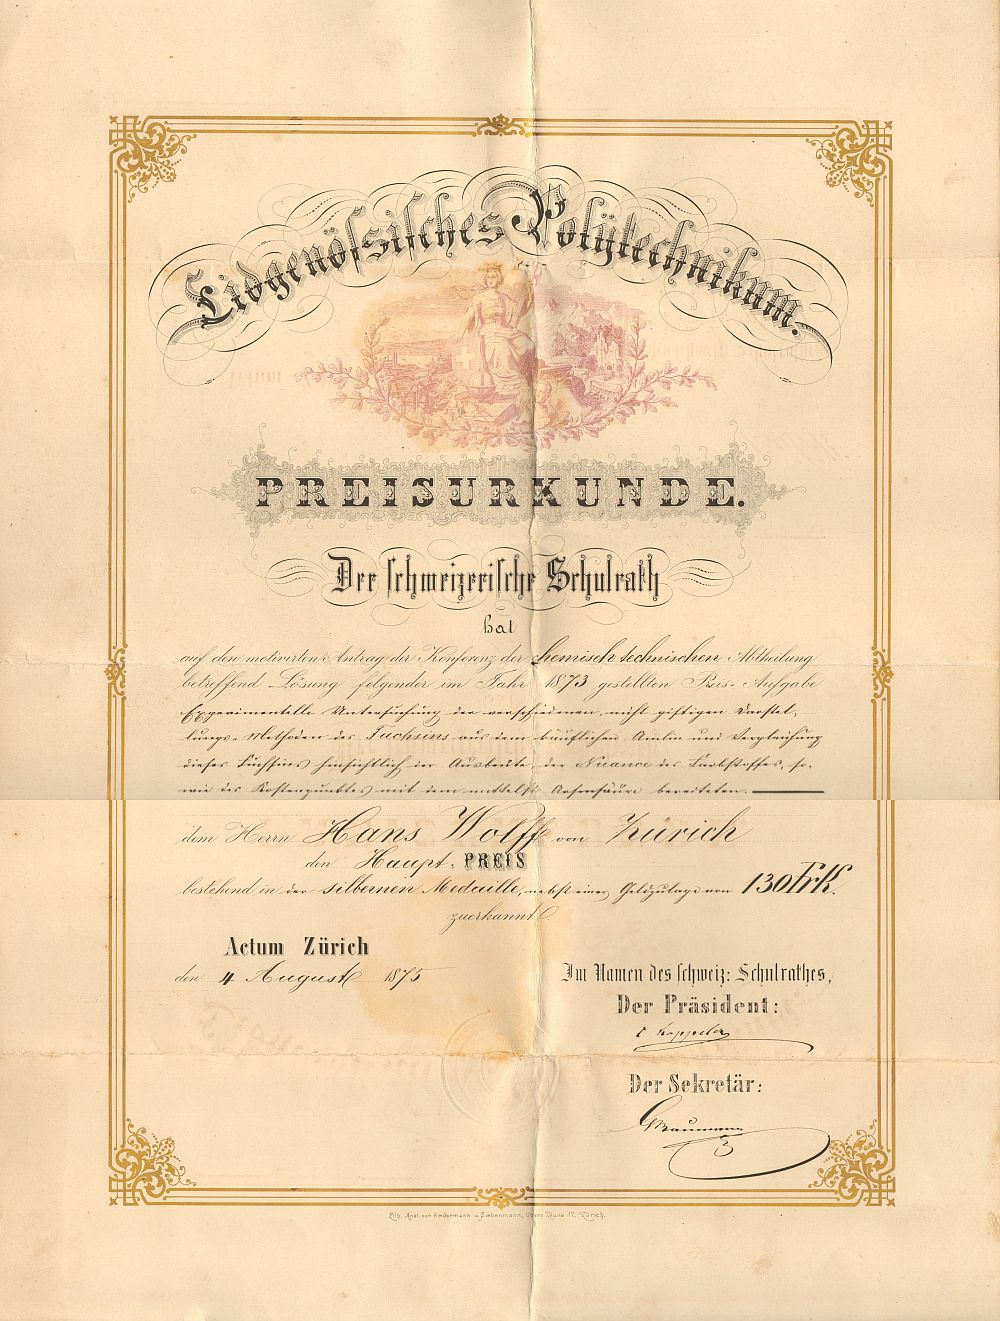 Eidgenössisches Polytechnikum.
PREISURKUNDE.
Der schweizerische Schulrath
hat
auf den motivirten Antrag der Konferenz der chemisch technischen Abtheilung
betreffend Lösung folgender im Jahr 1873 gestellten Preis-Aufgabe
Experimentelle Untersuchung der verschiedenen, nicht giftigen Darstel-
lungs-Methoden des Fuchsins aus dem käuflichen Anilin und Vergleichung
dieses Fuchsins hinsichtlich der Ausbeute, der Nuance des Farbstoffes, so-
wie des Kostenpunktes mit dem mittelst Arsensäure bereiteten.
dem Herrn Hans Wolff von Zürich
den Haupt-PREIS
bestehend in der silbernen Medaille, nebst einer Geldzulage von 130 Frk.
zuerkannt
Actum Zürich
den 4 August 1875
Im Namen des schweiz: Schulrathes,
Der Präsident:
C Kappeler
Der Sekretär:
G Baumann
Lith. Anst. von Kindermann u. Siebenmann, Obere Zäune 17. Zürich.